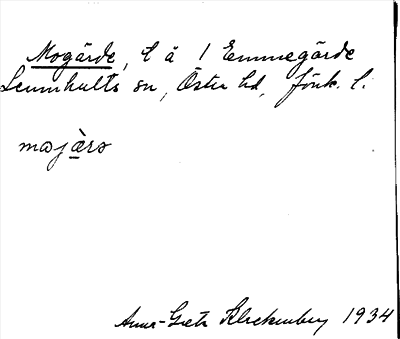 Mogärde, l å 1 Emmegärde
Lemnhults sn, Östra hd, Jönk. l.
mωjä̀rω
Anna-Greta Klockenberg 1934